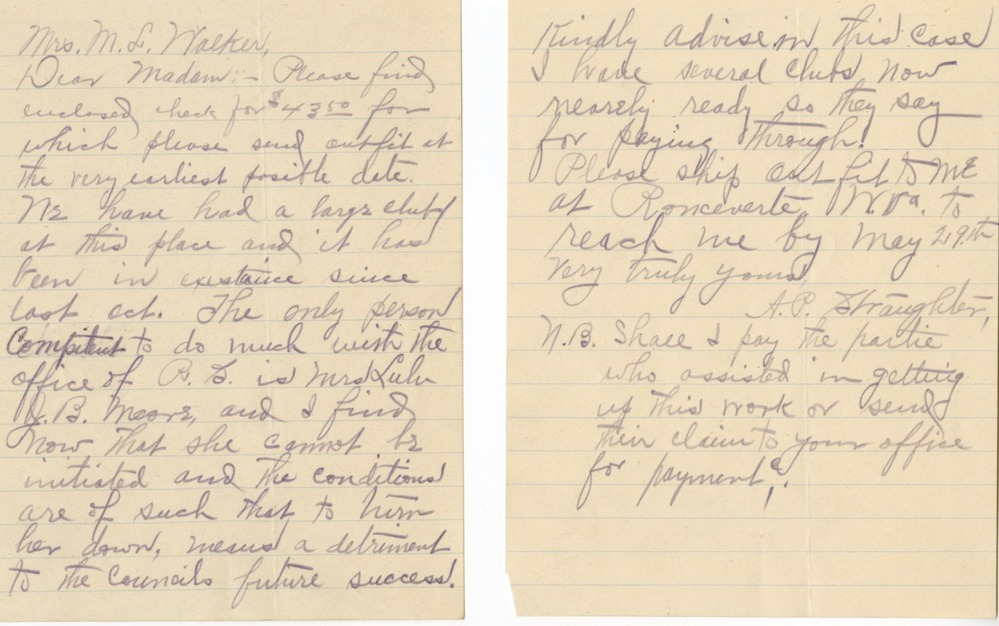 Mrs. M. L. Walker,
Dear Madam:- Please find
enclosed check for $43 50 for
which please send outfit at
the very earliest posible date.
We have had a large club
at this place and it has
been in existance since
last oct. The only person
Compitent to do much with the
office of R. S. is Mrs Lulu
B. Moore, and I find
now that she cannot be
initiated and the conditions
are of such that to turn
her down, means a detriment
to the Councils future success.
Kindly advise in this case
I have several clubs now
nearely ready so they say
for paying through.
Please ship outfit to me
at Ronceverte, W.Va. to
reach me by May 29th
Very truly yours,
A. P. Straughter,
N.B. Shall I pay the partie
who assisted in getting
up this work or send
their claim to your office
for payment?